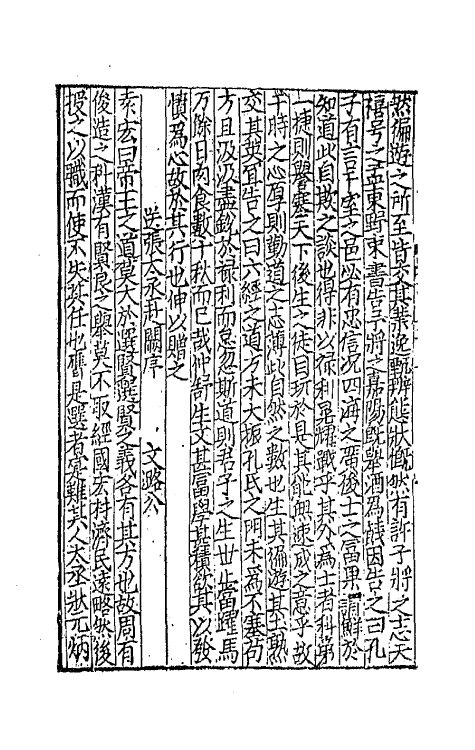 然徧遊之所至皆交其業逸騁雜態狀慨然有訴予將之志天
禧号之孟東野東書告予將之嘉陽既舉酒爲餞因告之曰孔
子有言十室之邑必有忠信况四海之廣後士之富果謂鮮於
知道此自欺之談也得非以禄利軍 戰乎其外爲士者科第
一捷則譽塞天下後生之徒目玩於是其能無速成之意乎故
干時之心厚則勤道之志薄此自然之數也生其徧遊甚熟
交其我宜告之曰六經之道方未大振孔氏之門未爲不塞苟
方且汲汲盡銳於禄利而怠忽斯道則君子之生世 當躍馬
万餘日肉食數千秋而已哉仲舒生文甚富學甚積欲其以發
憤爲心故於其行也伸以贈之
送張令永赴闕序 文潞公
泰宏曰帝王之道莫大於選賢選賢之義各有其方也故周有
俊造之科漢有賢良之舉莫不取經國宏材濟民遠略然後
授之以職而使不失其任也膺是選者寔難其人大丞狀元炳